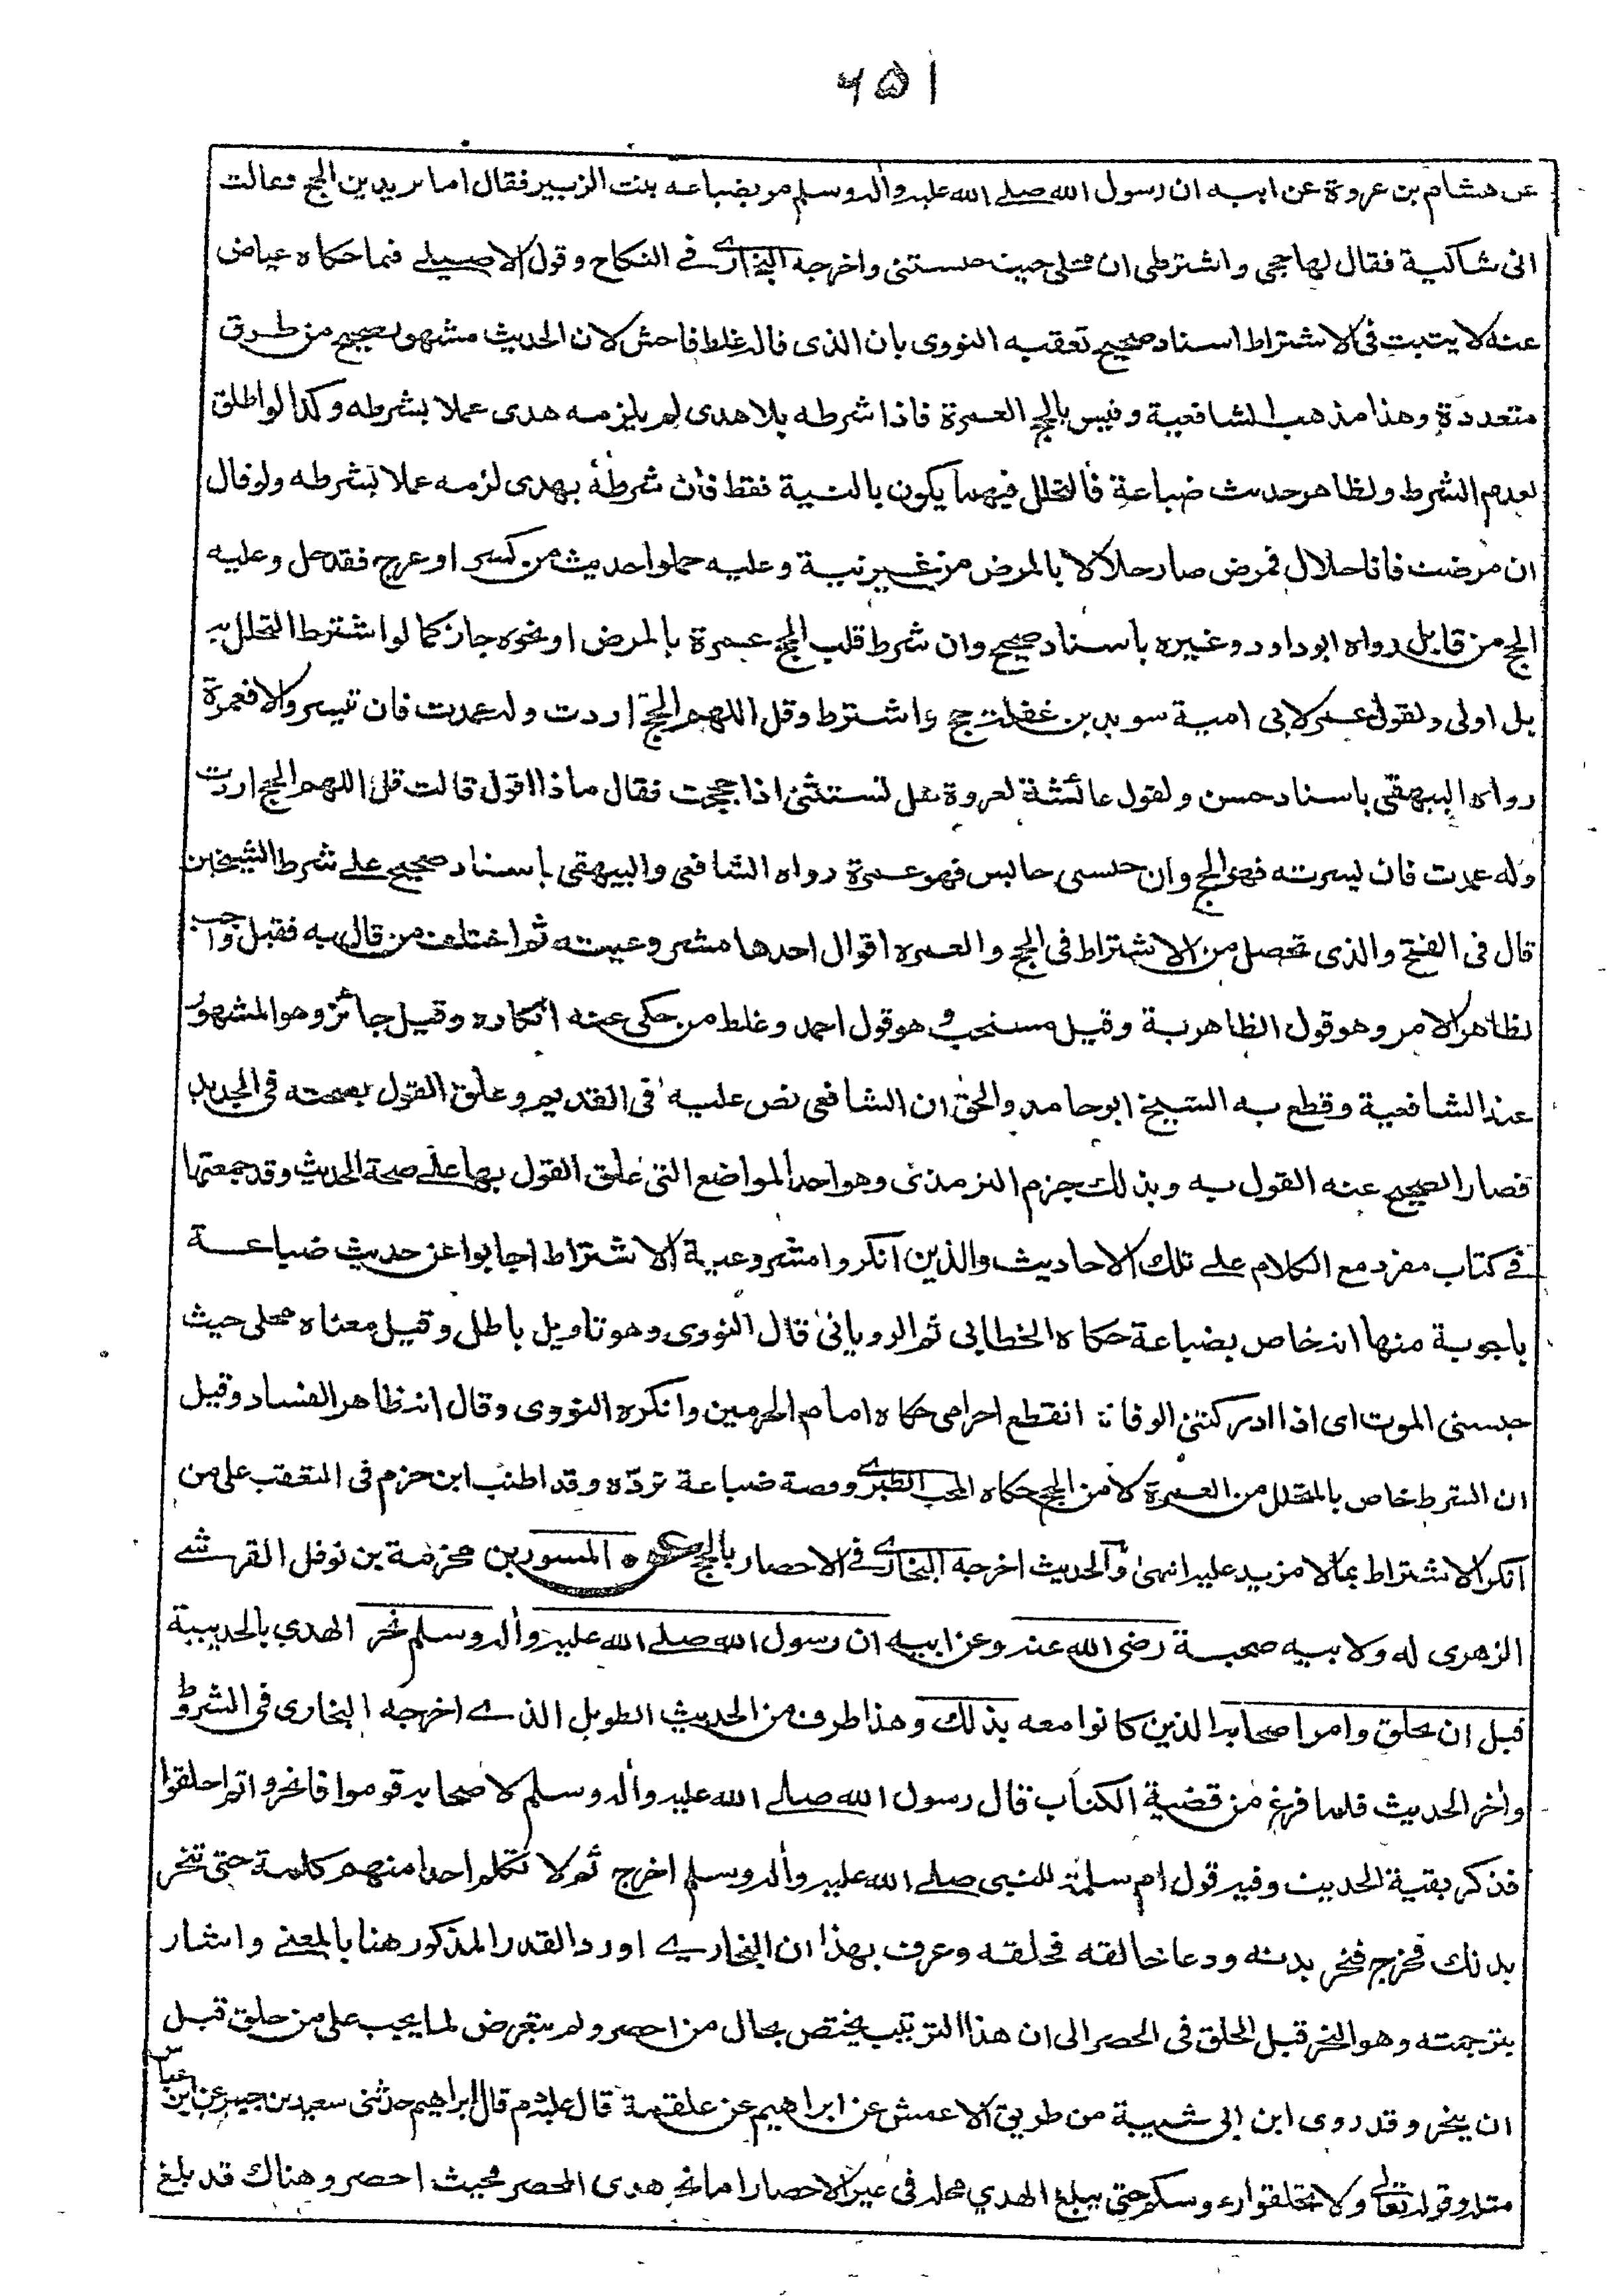 ۶۵۱
عن هشام بن عروة عن ابيه ان رسول الله صلى الله عليه وأله وسلم مر بضباعه بنت الزبير فقال اما تريدين الحج فقالت
انى شاكية فقال لها حجى واشترطى ان محلى حيث حبستنى واخرجه البخارى فى النكاح وقول الاصيلى فيما حكاه عياض
عنه لا يثبت فى الاشتراط اسناد صحيح تعقبه النووى بان الذى قاله غلط فاحش لان الحديث مشهور صحيح من طرق
متعددة وهذا مذهب الشافعية وقيس بالحج العمرة فاذا شرطه بلا هدى لم يلزمه هدى عملا بشرطه وكذا لو اطلق
لعدم الشرط ولظاهر حديث ضباعة فالتحلل فيهما يكون بالنية فقط فان شرطه بهدى لزمه عملا بشرطه ولو قال
ان مرضت فانا حلال فمرض صار حلالا بالمرض من غير نية وعليه حملوا حديث من كسر او عرج فقد حل وعليه
الحج من قابل رواه ابوداود وغيره باسناد صحيح وان شرط قلب الحج عمرة بالمرض او نحوه جاز كما لو اشترط التحلل به
بل اولى ولقول عمر لابى امية سويد بن غفلة حج واشترط وقل اللهم الحج اردت وله عمدت فان تيسر والا فعمرة
رواه البيهقى باسناد حسن ولقول عائشة لعروة هل تستثنى اذا حججت فقال ماذا اقول قالت قل اللهم الحج اردت
وله عمدت فان يسرته فهو الحج وان حبسنى حابس فهو عمرة رواه الشافعى والبيهقى باسناد صحيح على شرط الشيخين
قال فى الفتح والذى تحصل من الاشتراط فى الحج والعمره اقوال احدها مشروعيته ثم اختلف من قال به فقيل واجب
لظاهر الامر وهو قول الظاهرية وقيل مستحب وهو قول احمد وغلط من حكى عنه انكاره وقيل جائز وهو المشهور
عند الشافعية وقطع به الشيخ ابوحامد والحق ان الشافعى نص عليه فى القديم وعلق القول بصحته فى الجديد
فصار الصحيح عنه القول به وبذلك جزم الترمذى وهو احد المواضع التى علق القول بها على صحة الحديث وقد جمعتها
فى كتاب مفرد مع الكلام على تلك الاحاديث والذين انكروا مشروعية الاشتراط اجابوا عن حديث ضباعة
باجوبة منها انه خاص بضباعة حكاه الخطابى ثم الرويانى قال النووى وهو تاويل باطل وقيل معناه محلى حيث
حبسنى الموت اى اذا ادركتنى الوفاة انقطع احرامى حكاه امام الحرمين وانكره النووى وقال انه ظاهر الفساد وقيل
ان الشرط خاص بالتحلل من العمرة لا من الحج حكاه المحب الطبرى وقصة ضباعة تردّه وقد اطنب ابن حزم فى التعقب على من
انكر الاشتراط بما لا مزيد عليه انتهى والحديث اخرجه البخارى فى الاحصار بالحج عن المسور بن مخرمة بن نوفل القرشى
الزهرى له ولابيه صحبة رضى الله عنه وعن ابيه ان رسول الله صلى الله عليه وأله وسلم نحر الهدي بالحديبية
قبل ان يحلق وامر اصحابه الذين كانوا معه بذلك وهذا طرف من الحديث الطويل الذى اخرجه البخارى فى الشروط
واخر الحديث فلما فرغ من قضية الكتاب قال رسول الله صلى الله عليه وأله وسلم لاصحابه قوموا فانحروا ثم احلقوا
فذكر بقية الحديث وفيه قول ام سلمة للنبى صلى الله عليه وأله وسلم اخرج ثم لا تكلم احدا منهم كلمة حتى تنحر
بدنك فخرج فنحر بدنه ودعا خالقه فحلقه وعرف بهذا ان البخارى اورد القدر المذكور هنا بالمعنى واشار
بترجمته وهو النحر قبل الحلق فى الحصر الى ان هذا الترتيب يختص بحال من احصر ولم يتعرض لما يجب على من حلق قبل
ان ينحر وقد روى ابن ابى شيبة من طريق الاعمش عن ابراهيم عن علقمة قال عليه دم قال ابراهيم حدثنى سعيد بن جبير عن ابن عباس
مثله وقوله تعالى ولا تحلقوا رءوسكم حتى يبلغ الهدي محله فى غير الاحصار اما نحر هدى المحصر فحيث احصر وهناك قد بلغ